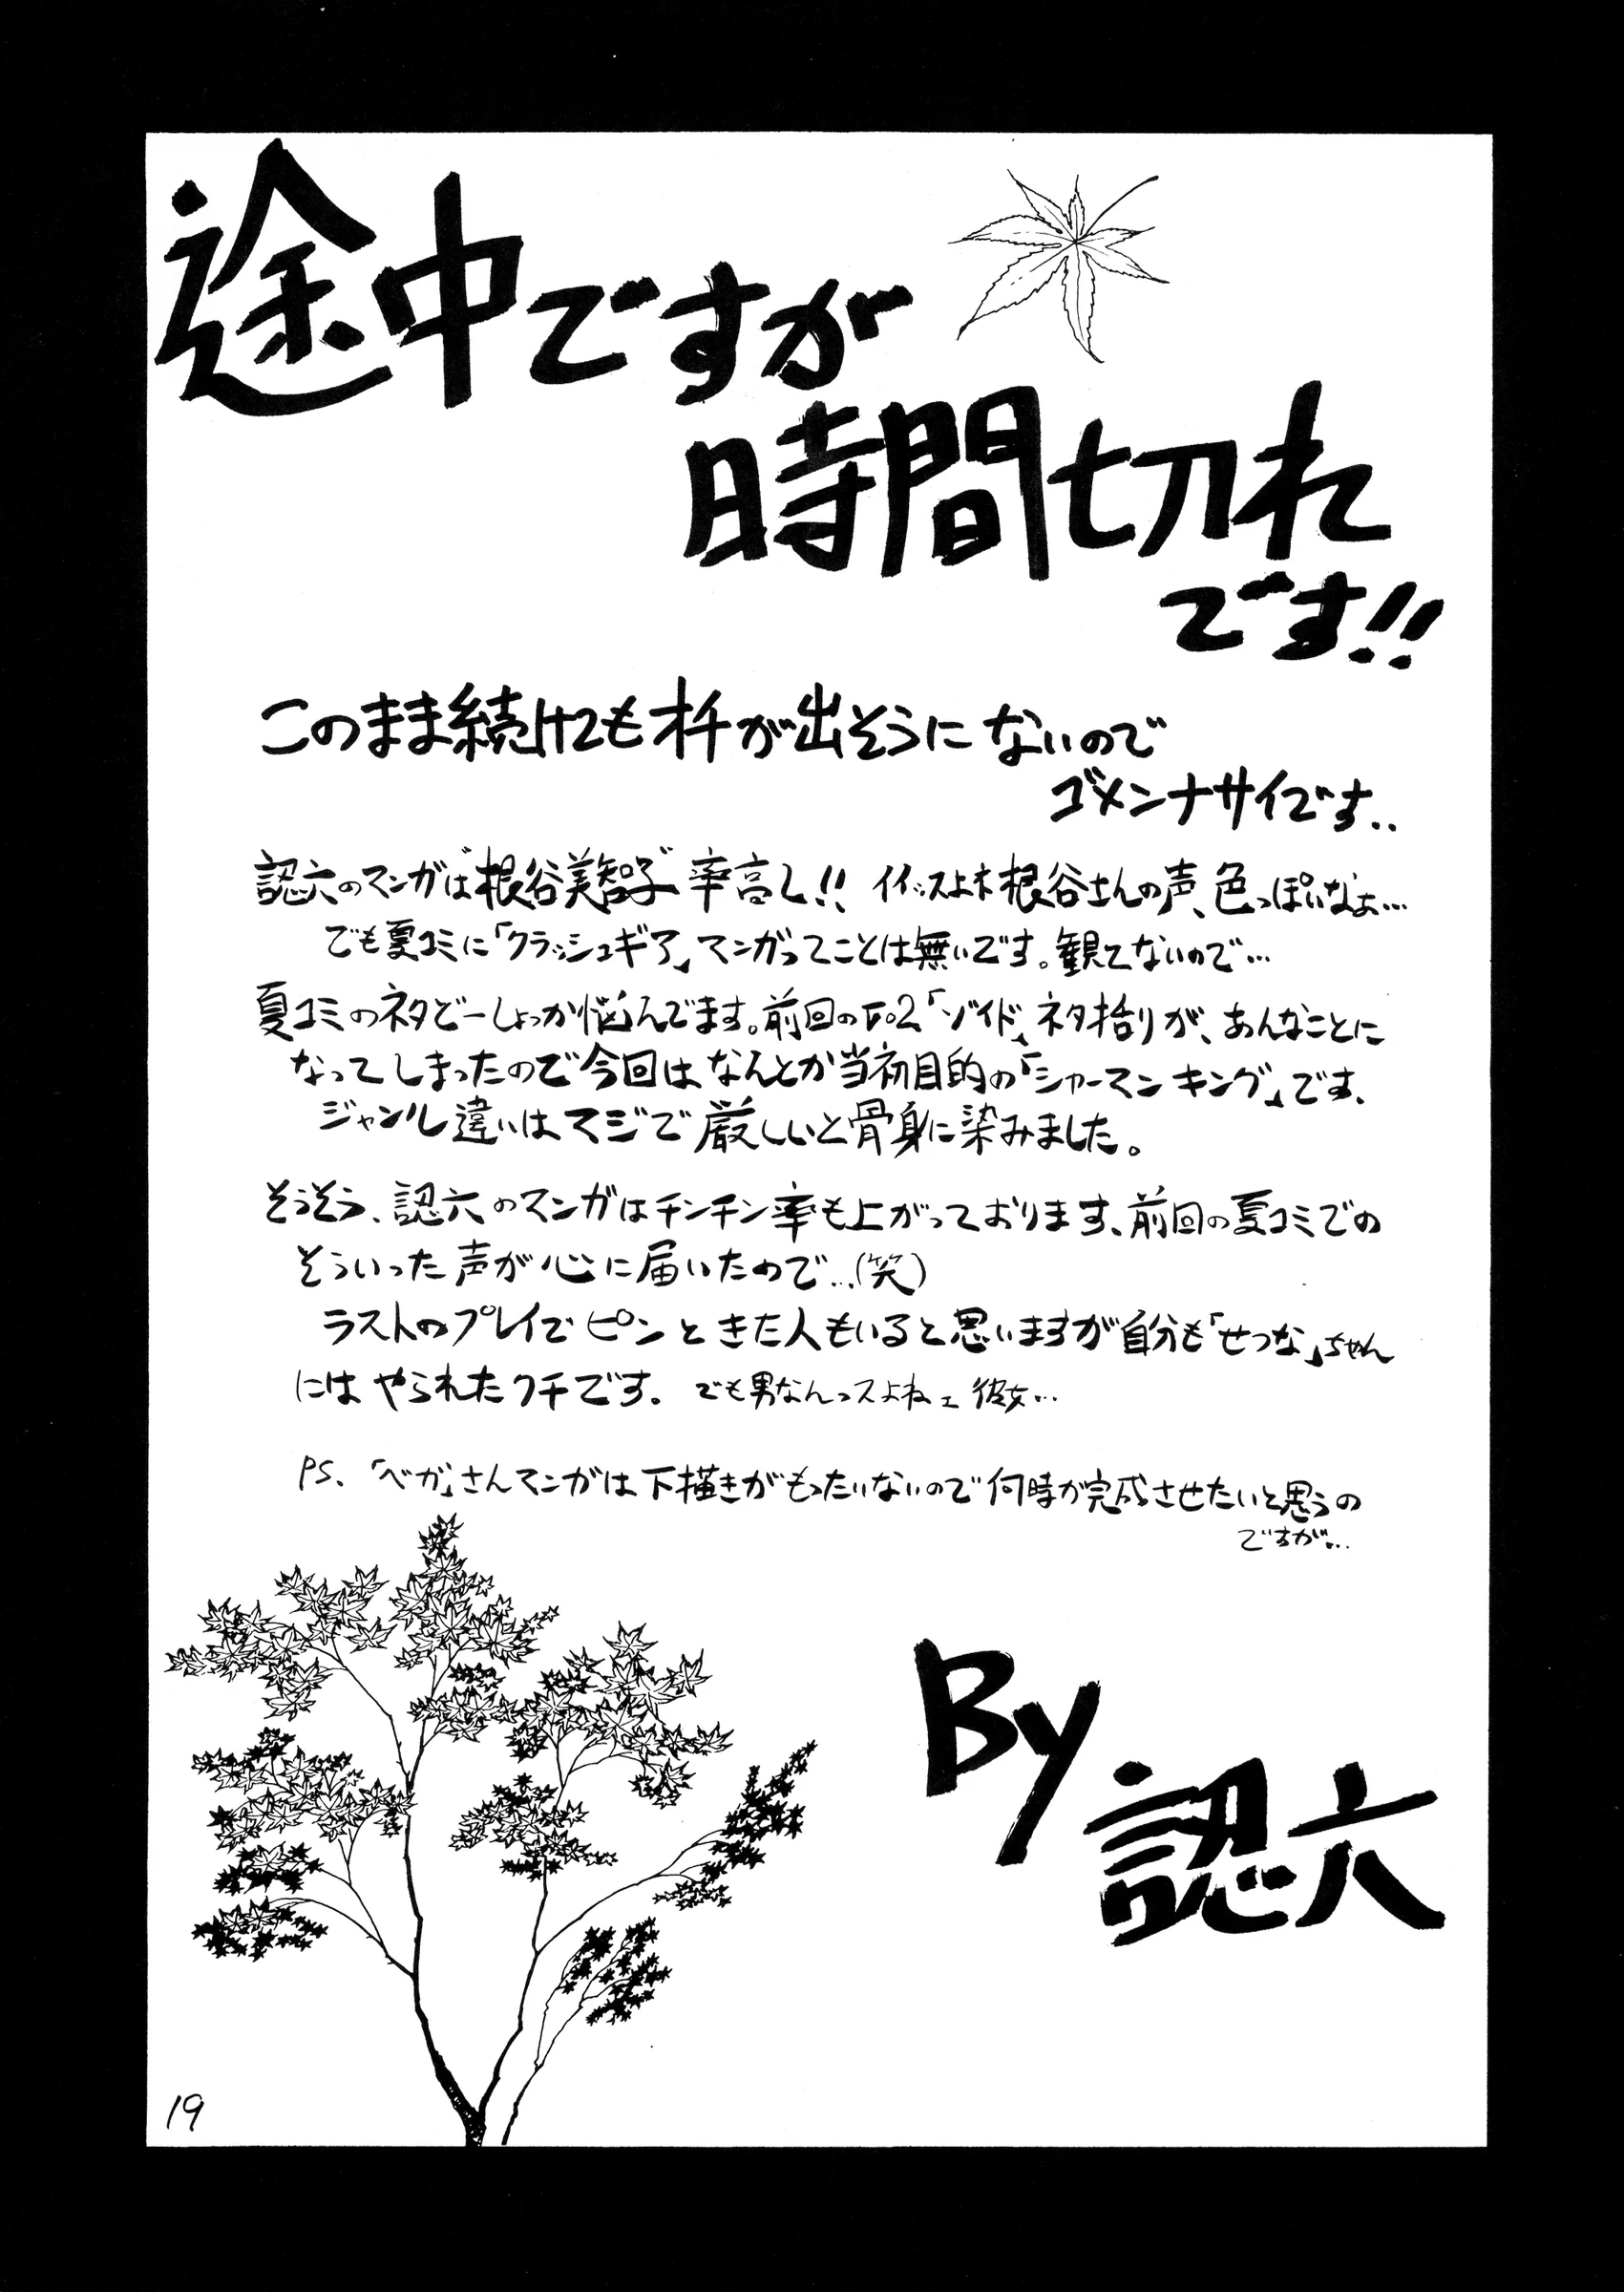 途中ですが
時間切れ
です!!
このまま続けてもオチが出そうにないので
ゴメンナサイです..
認六のマンガは“根谷美智子”率高し!! イイッスよネ根谷さんの声、色っぽいなぁ…
でも夏コミに「クラッシュギア」マンガってことは無いです。観てないので…
夏コミのネタどーしょっか悩んでます。前回のVo2「ゾイド」ネタ括りが、あんなことに
なってしまったので今回はなんとか当初目的の「シャーマンキング」です、
ジャンル違いはマジで厳しいと骨身に染みました。
そうそう、認六のマンガはチンチン率も上がっております、前回の夏コミでの
そういった声が心に届いたので…(笑)
ラストのプレイでピンときた人もいると思いますが自分も「せつな」ちゃん
にはやられたクチです。でも男なんっスよねェ彼女…
PS、「ベガ」さんマンガは下描きがもったいないので何時か完成させたいと思うの
ですが…
By
認六
19